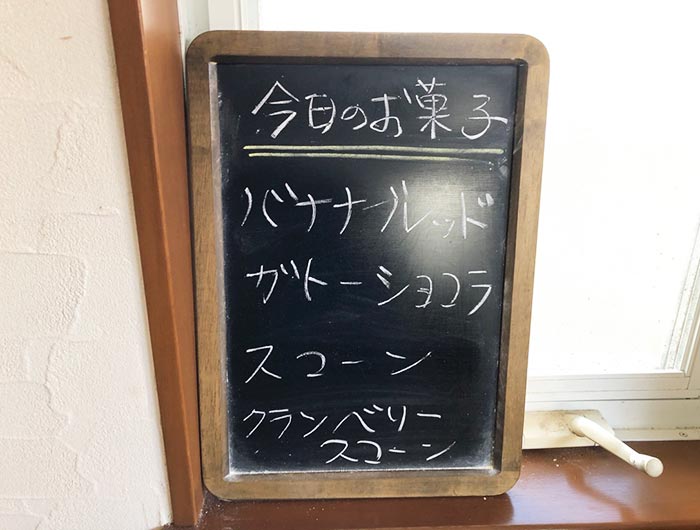 今日のお菓子
バナナルレッド
ガトーショコラ
スコーン
クランベリー
スコーン